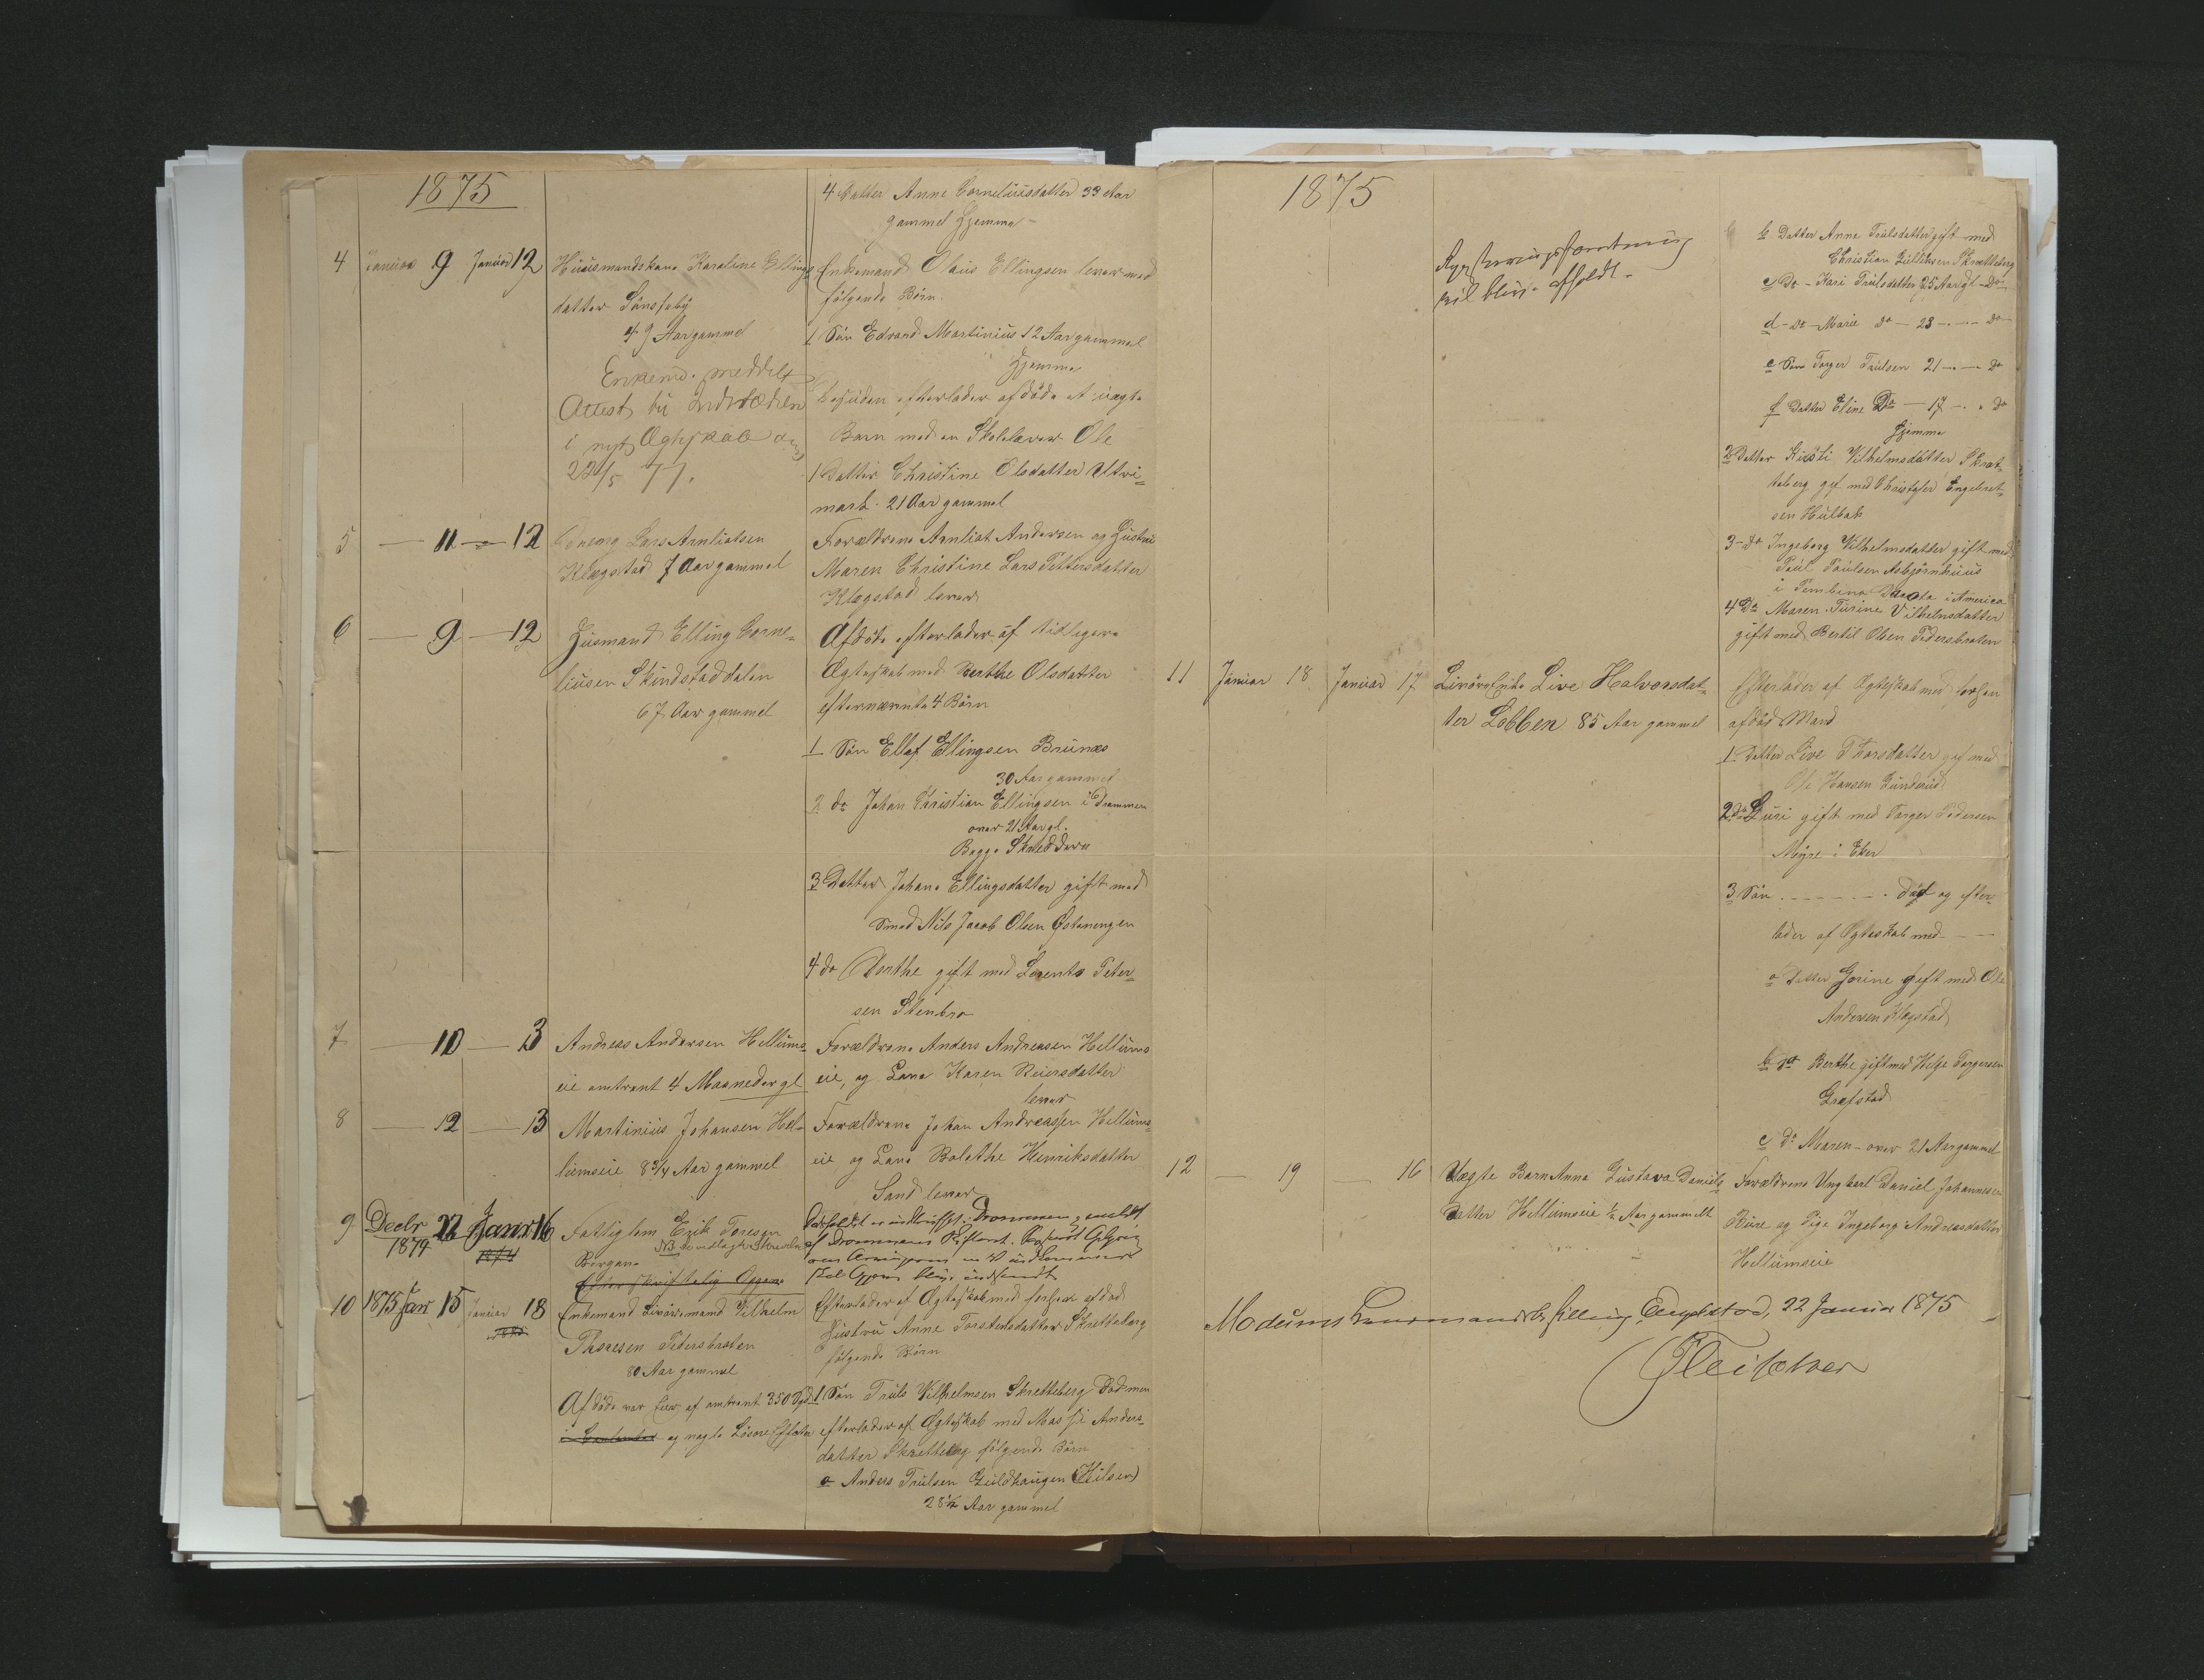 1875
4 Datter Anne Corneliusdatter 33 Aar
gammel hjemme
4 Januar 9 Januar 12 Huusmandskone Karoline Ellings
datter Sønsteby
49 Aar gammel
Enkemd. meddelt
Attest til Indtræden
i nyt Ægteskab
22/5 77.
Enkemand Olaus Ellingsen lever med
følgende Børn
1 Søn Edvard Martinius 12 Aar gammel
hjemme
Desuden efterlader afdøde et uægte
Barn med en Skolelærer Ole
1 Datter Christine Olsdatter
mark 21 Aar gammel
5 — 11 — 12 Lars Arnliotsen
Klægstad 7 Aar gammel
Forældrene Arnliot Andersen og Hustru
Maren Christine Lars Pettersdatter
Klægstad lever
6 — 9 — 12 Husmand Elling Corne-
liusen Skindstaddalen
67 Aar gammel
Afdøde efterlader af tidligere
Ægteskab med Berthe Olsdatter
efternævnte 4 Børn
1 Søn Ellef Ellingsen Brunæs
30 Aar gammel
2 do Johan Christian Ellingsen i Drammen
over 21 Aar gl.
Begge Skreddere
3 Datter Johane Ellingsdatter gift med
Smed Nils Jacob Olsen Østenengen
4 do Berthe gift med Lorents Peter-
sen Stenbro
7 — 10 — 13 Andreas Andersen Hellums-
eie omtrent 4 Maaneder gl
Forældrene Anders Andreasen Hellums
eie, og Kone Karen Reiersdatter
lever
8 — 12 — 13 Martinius Johansen Hel-
lumseie 8 3/4 Aar gammel
Forældrene Johan Andreassen Hellums-
eie og Kone Bolethe Henriksdatter
Sand lever
9 Decbr 22 Januar 16
1874 1874
Fattiglem Erik Toresen
Bergan
Efter skriftelig Opgave
af Drammens
10 1875 Jan 15 Januar 18 Enkemand Livøremand Vilhelm
Thoresen Pedersbraten
80 Aar gammel
Afdøde var Eier af omtrent 350 Spd
og nogle Løsøre Effecter
Efterlader af Ægteskab med forhen afdød
Hustru Anne Torstensdatter Skretteberg
følgende Børn
1 Søn Truls Vilhelmsen Skretteberg død men
efterlader af Ægteskab med Massi Anders-
datter Skretteberg følgende Børn
a Anders Trulsen Guldhaugen (Hilsen)
28 1/2 Aar gammel
1875
vil blive afholdt.
b Datter Anne Trulsdatter gift med
Christian Gulliksen Skretteberg
c Do - Kari Trulsdatter 25 Aar gl - Do
d - Do - Marie do - 23 — do
e Søn Torger Trulsen 21 — do
f Datter Eline Do — 17 — do
hjemme
2 Datter Kisti Vilhelmsdatter Skret-
teberg gif med Christofer Engebret-
sen Hulbak
3 - do Ingeborg Vilhelmsdatter gift med
Poul Poulsen Asbjørnhuus
i Pembina Dacota i America
4 Do Maren Turine Vilhelmsdatter
gift med Bertil Olsen Pedersbraten
11 Januar 18 Januar 17 Livøreenke Live Halvorsdat-
ter Lobben 85 Aar gammel
Efterlader af Ægteskab med forhen
afdød Mand
1 Datter Live Thorsdatter gif med
Ole Hansen Lunderud
2 Do Guri gift med Torger Pedersen
Myre i Eker
3 Søn - - - - - - - død og efter-
lader af Ægteskab med - - -
a Datter Gorine gift med Ole
Andersen Klægstad
b do Berthe gift med Helge Torgersen
Grefstad
c do Maren - over 21 Aar gammel
12 — 19 — 16 Uægte Barn Anna Gustava Daniels
datter Hellumseie 1/2 Aar gammelt
Forældrene Ungkarl Daniel Johannesen
Bure og Pige Ingeborg Andreasdatter
Hellumseie
Modums Lensmandsbestilling, 22 Januar 1875